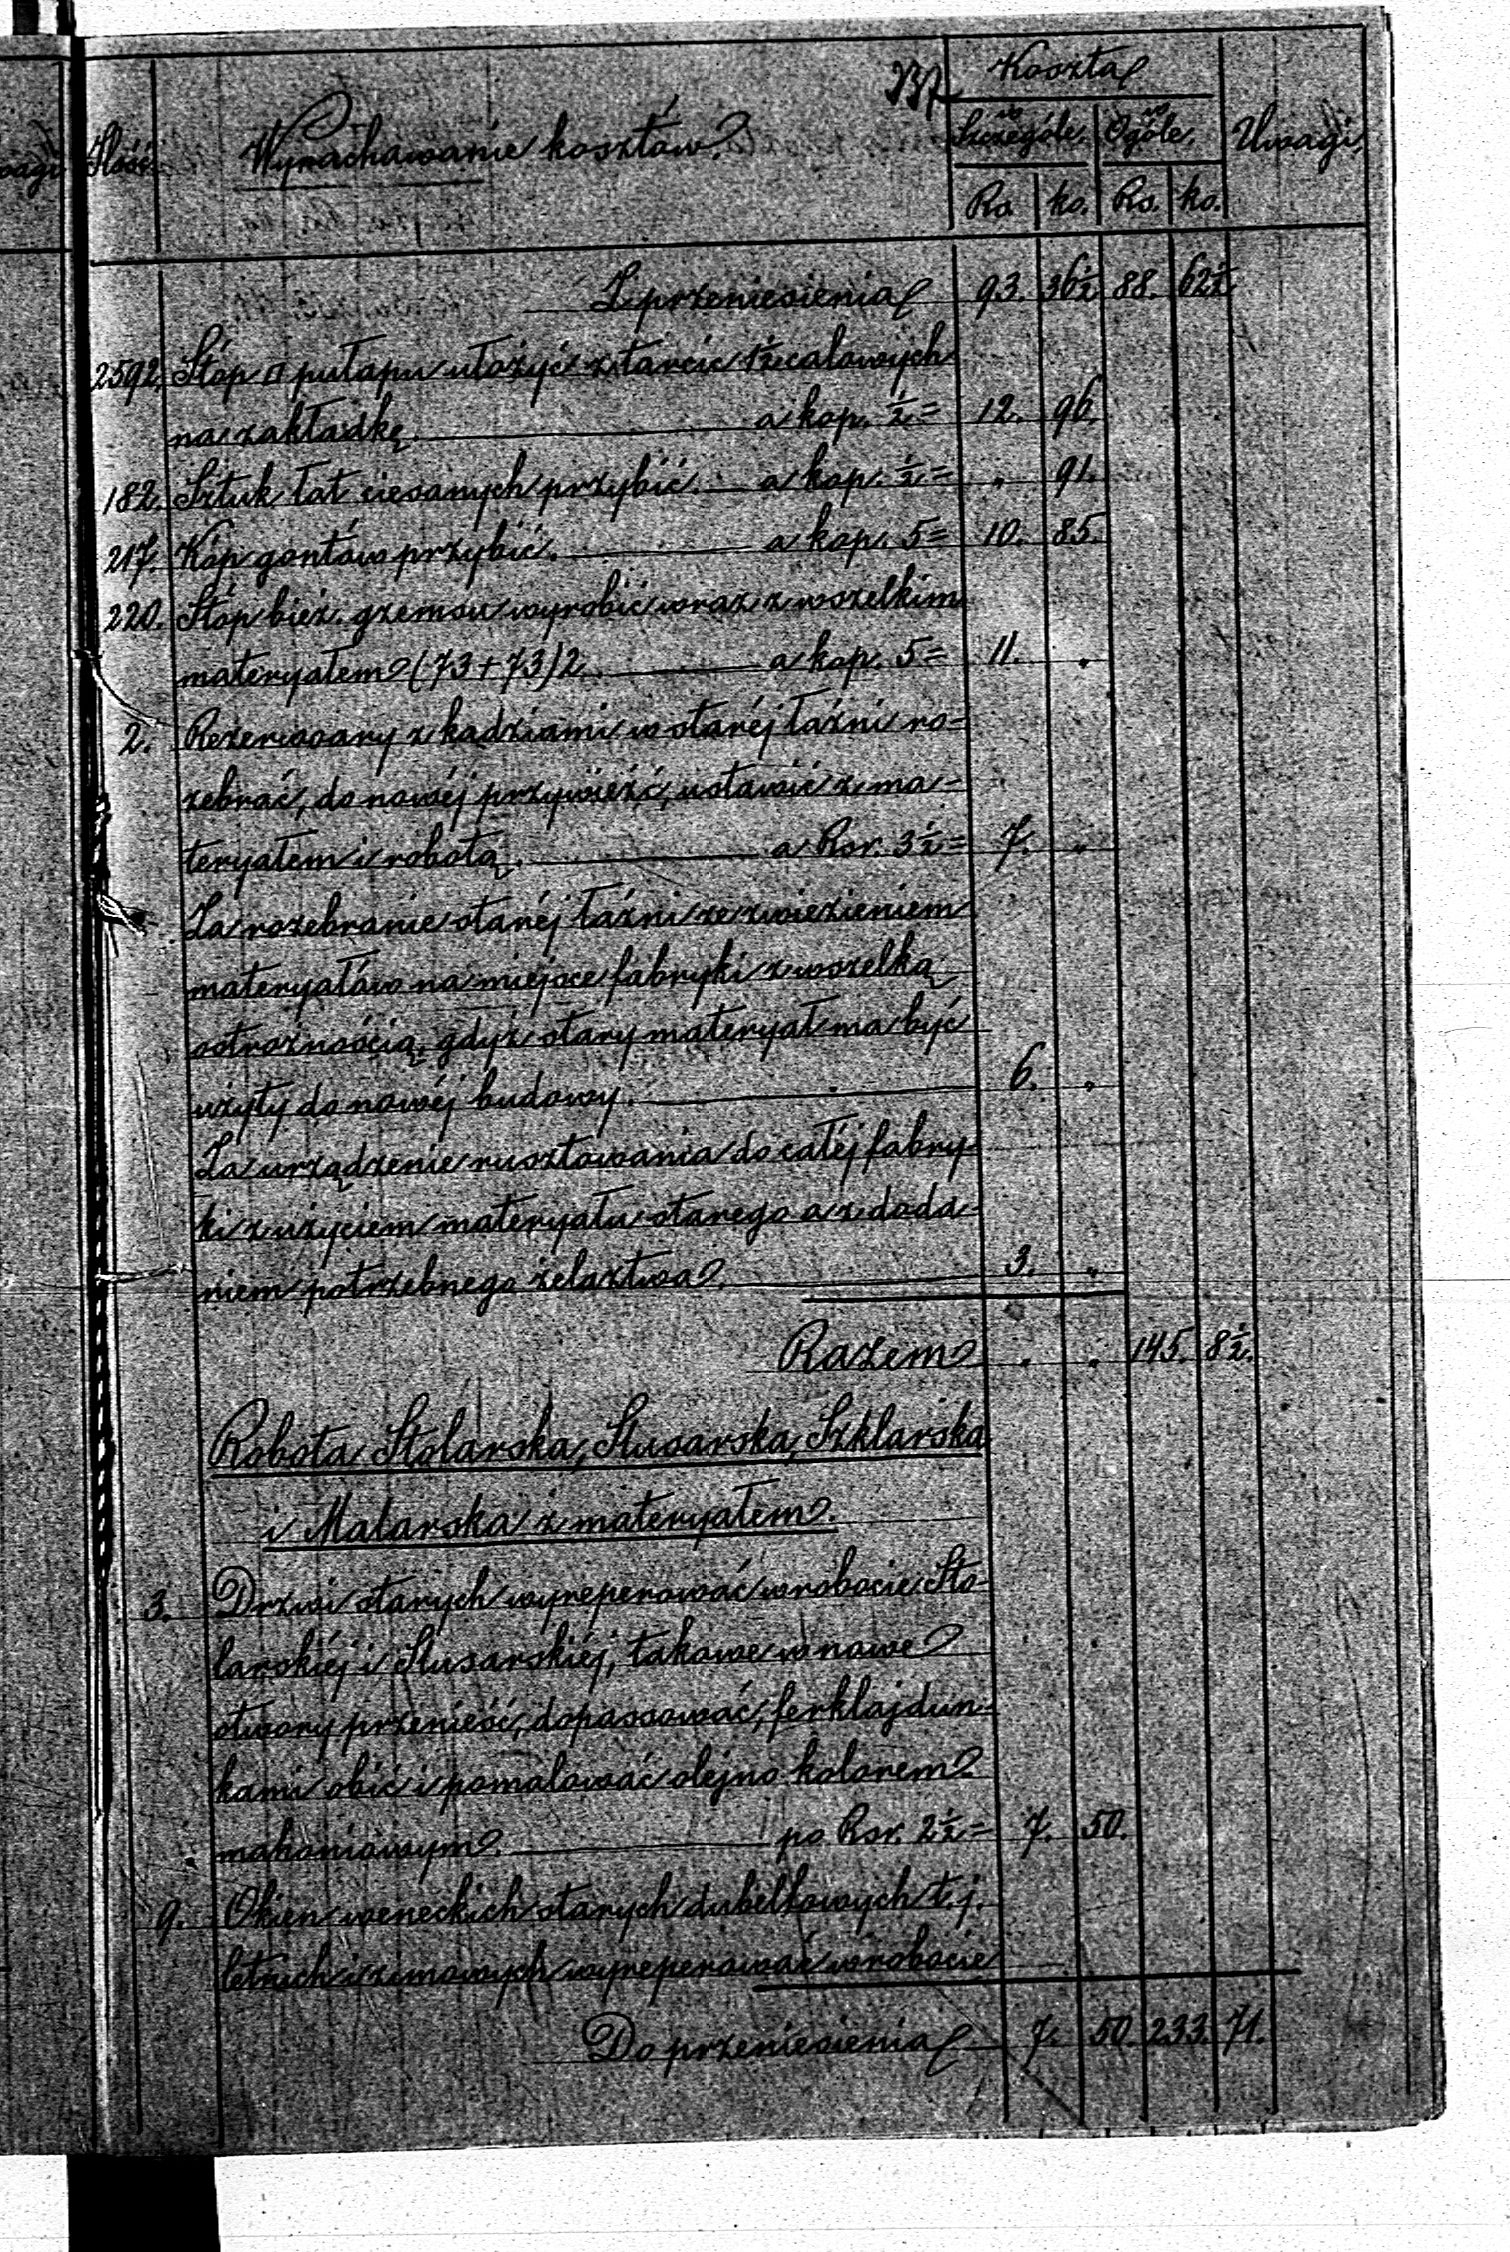 237
Koszta
Ilość Wyrachowanie kosztów w Szczególe. w Ogóle. Uwagi.
Rs. ko. Rs. ko.
Z przeniesienia 93. 36½ 88. 62½
2592. Stóp □ pułapu ułożyć z tarcic 1½ calowych
na zakładkę. a kop. ½ = 12. 96.
182. Sztuk łat ciesanych przybić. a kop. ½ = " 91.
217. Kóp gontów przybić. a kop. 5 = 10. 85.
220. Stóp bież. gzemsu wyrobić wraz z wszelkim
materyałem (73+73)2. a kop. 5 = 11. "
2. Rezerwoary z kadziami w staréj łaźni ro-
zebrać, do nowéj przywieźć, ustawić z ma-
teryałem i robotą. a Rsr. 3½ = 7. "
Za rozebranie staréj łaźni ze zwiezieniem
materyałów na miejsce fabryki z wszelką
ostrożnością, gdyż stary materyał ma być
użyty do nowéj budowy. 6. "
Za urządzenie rusztowania do całéj fabry-
ki z użyciem materyału starego a z doda-
niem potrzebnego żelaztwa. 3. "
Razem " " 145. 8½.
Robota Stolarska, Slusarska, Szklarska
i Malarska z materyałem.
3. Drzwi starych wyreperować w robocie Sto-
larskiéj i Slusarskiéj, takowe w nowe
otwory przenieść, dopassować, ferklajdun-
kami obić i pomalować olejno kolorem
mahoniowym. po Rsr. 2½ = 7. 50.
9. Okien weneckich starych dubeltowych t.j.
letnich i zimowych wyreperować w robocie
Do przeniesienia 7. 50. 233. 71.